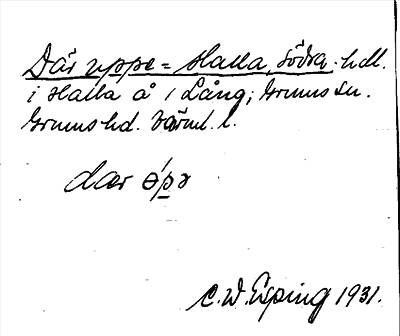 Där uppe = Halla, södra. hdl.
i Halla å i Lång; Grums sn.
Grums hd. Värml. l.
dær ɵ́pə
C. W. Esping 1931.